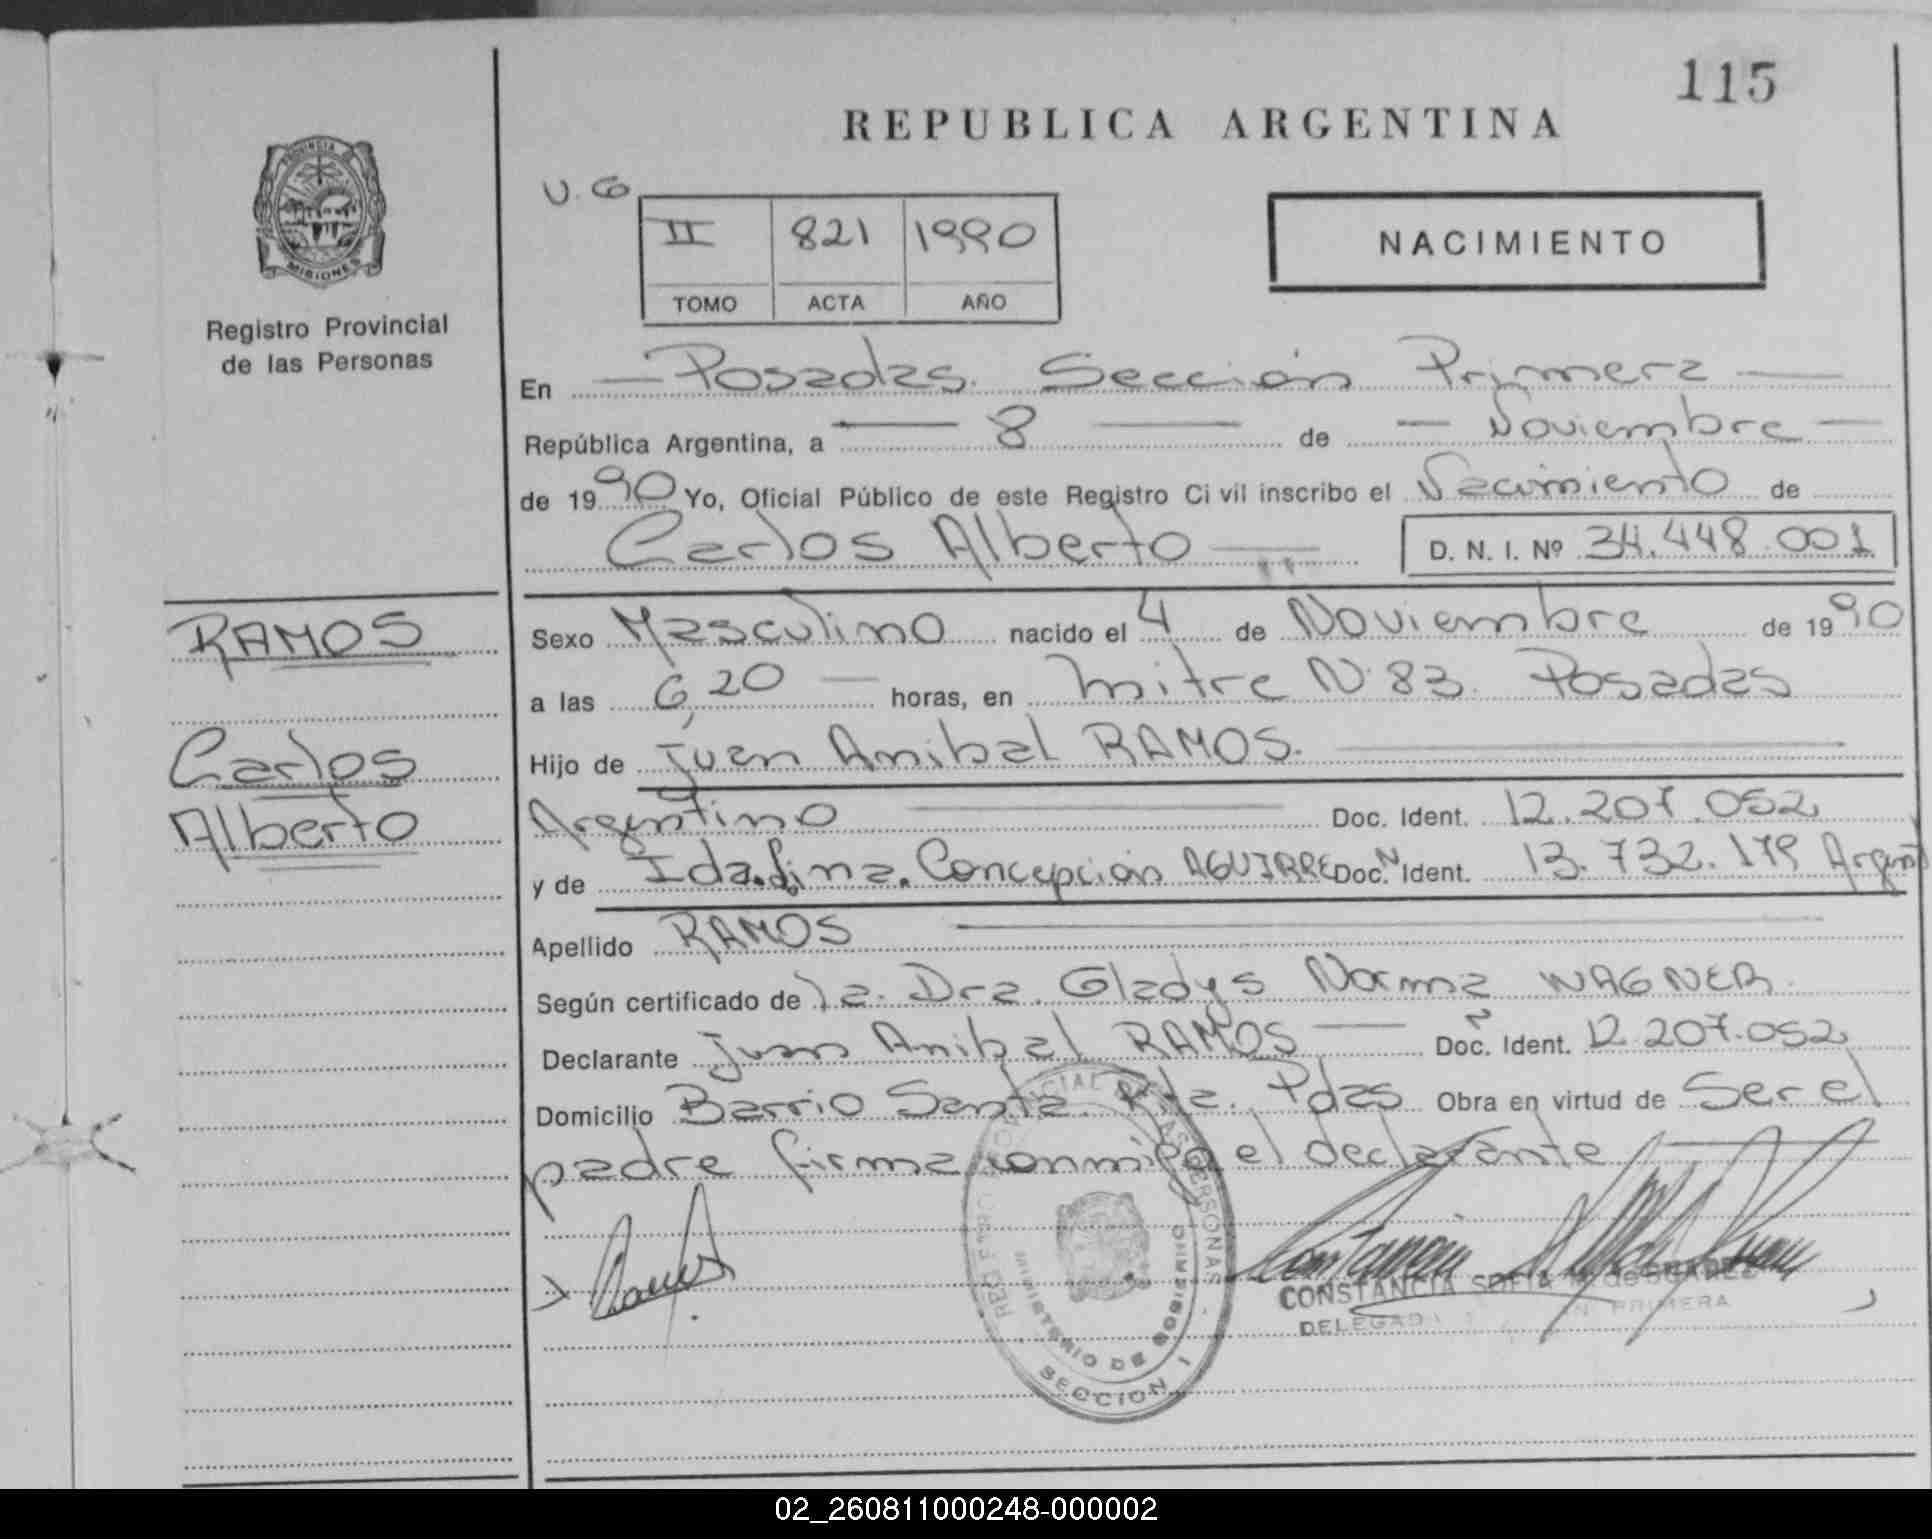 115
REPUBLICA ARGENTINA
PROVINCIA DE
MISIONES
Registro Provincial
de las Personas
U. G
II 821 1990
TOMO ACTA AÑO
NACIMIENTO
En Posadas. Sección Primera
República Argentina, a 8 de Noviembre
de 1990 Yo, Oficial Público de este Registro Civil inscribo el Nacimiento de
Carlos Alberto D. N. I. Nº 34.448.001
RAMOS
Carlos
Alberto
Sexo Masculino nacido el 4 de Noviembre de 1990
a las 6,20 horas, en Mitre Nº 83. Posadas
Hijo de Juan Anibal RAMOS.
Argentino Doc. Ident. 12.207.052
y de Ida Concepción AGUIRRE Doc. Ident. 13.732.179 Argent
Apellido RAMOS
Según certificado de la. Dra. Gladys Norma WAGNER.
Declarante Juan Anibal RAMOS Doc. Ident. 12.207.052
Domicilio Barrio Santa Rita. Pdas Obra en virtud de Ser el
padre firma conmigo el declarante
REGISTRO PROVINCIAL DE LAS PERSONAS
MINISTERIO DE GOBIERNO
SECCION 1
CONSTANCIA SOFIA de SUAREZ
PRIMERA
02_260811000248-000002